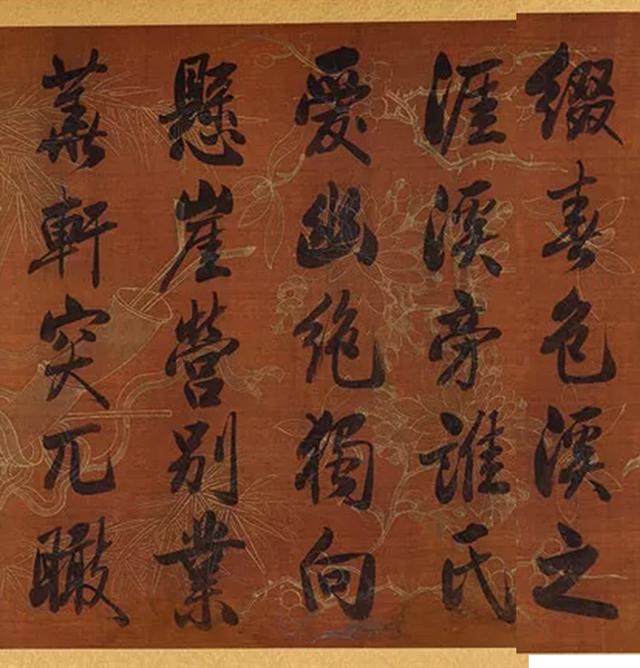 綴春色溪之
涯溪旁誰氏
愛幽絶獨向
懸崖營別業
華軒突兀瞰